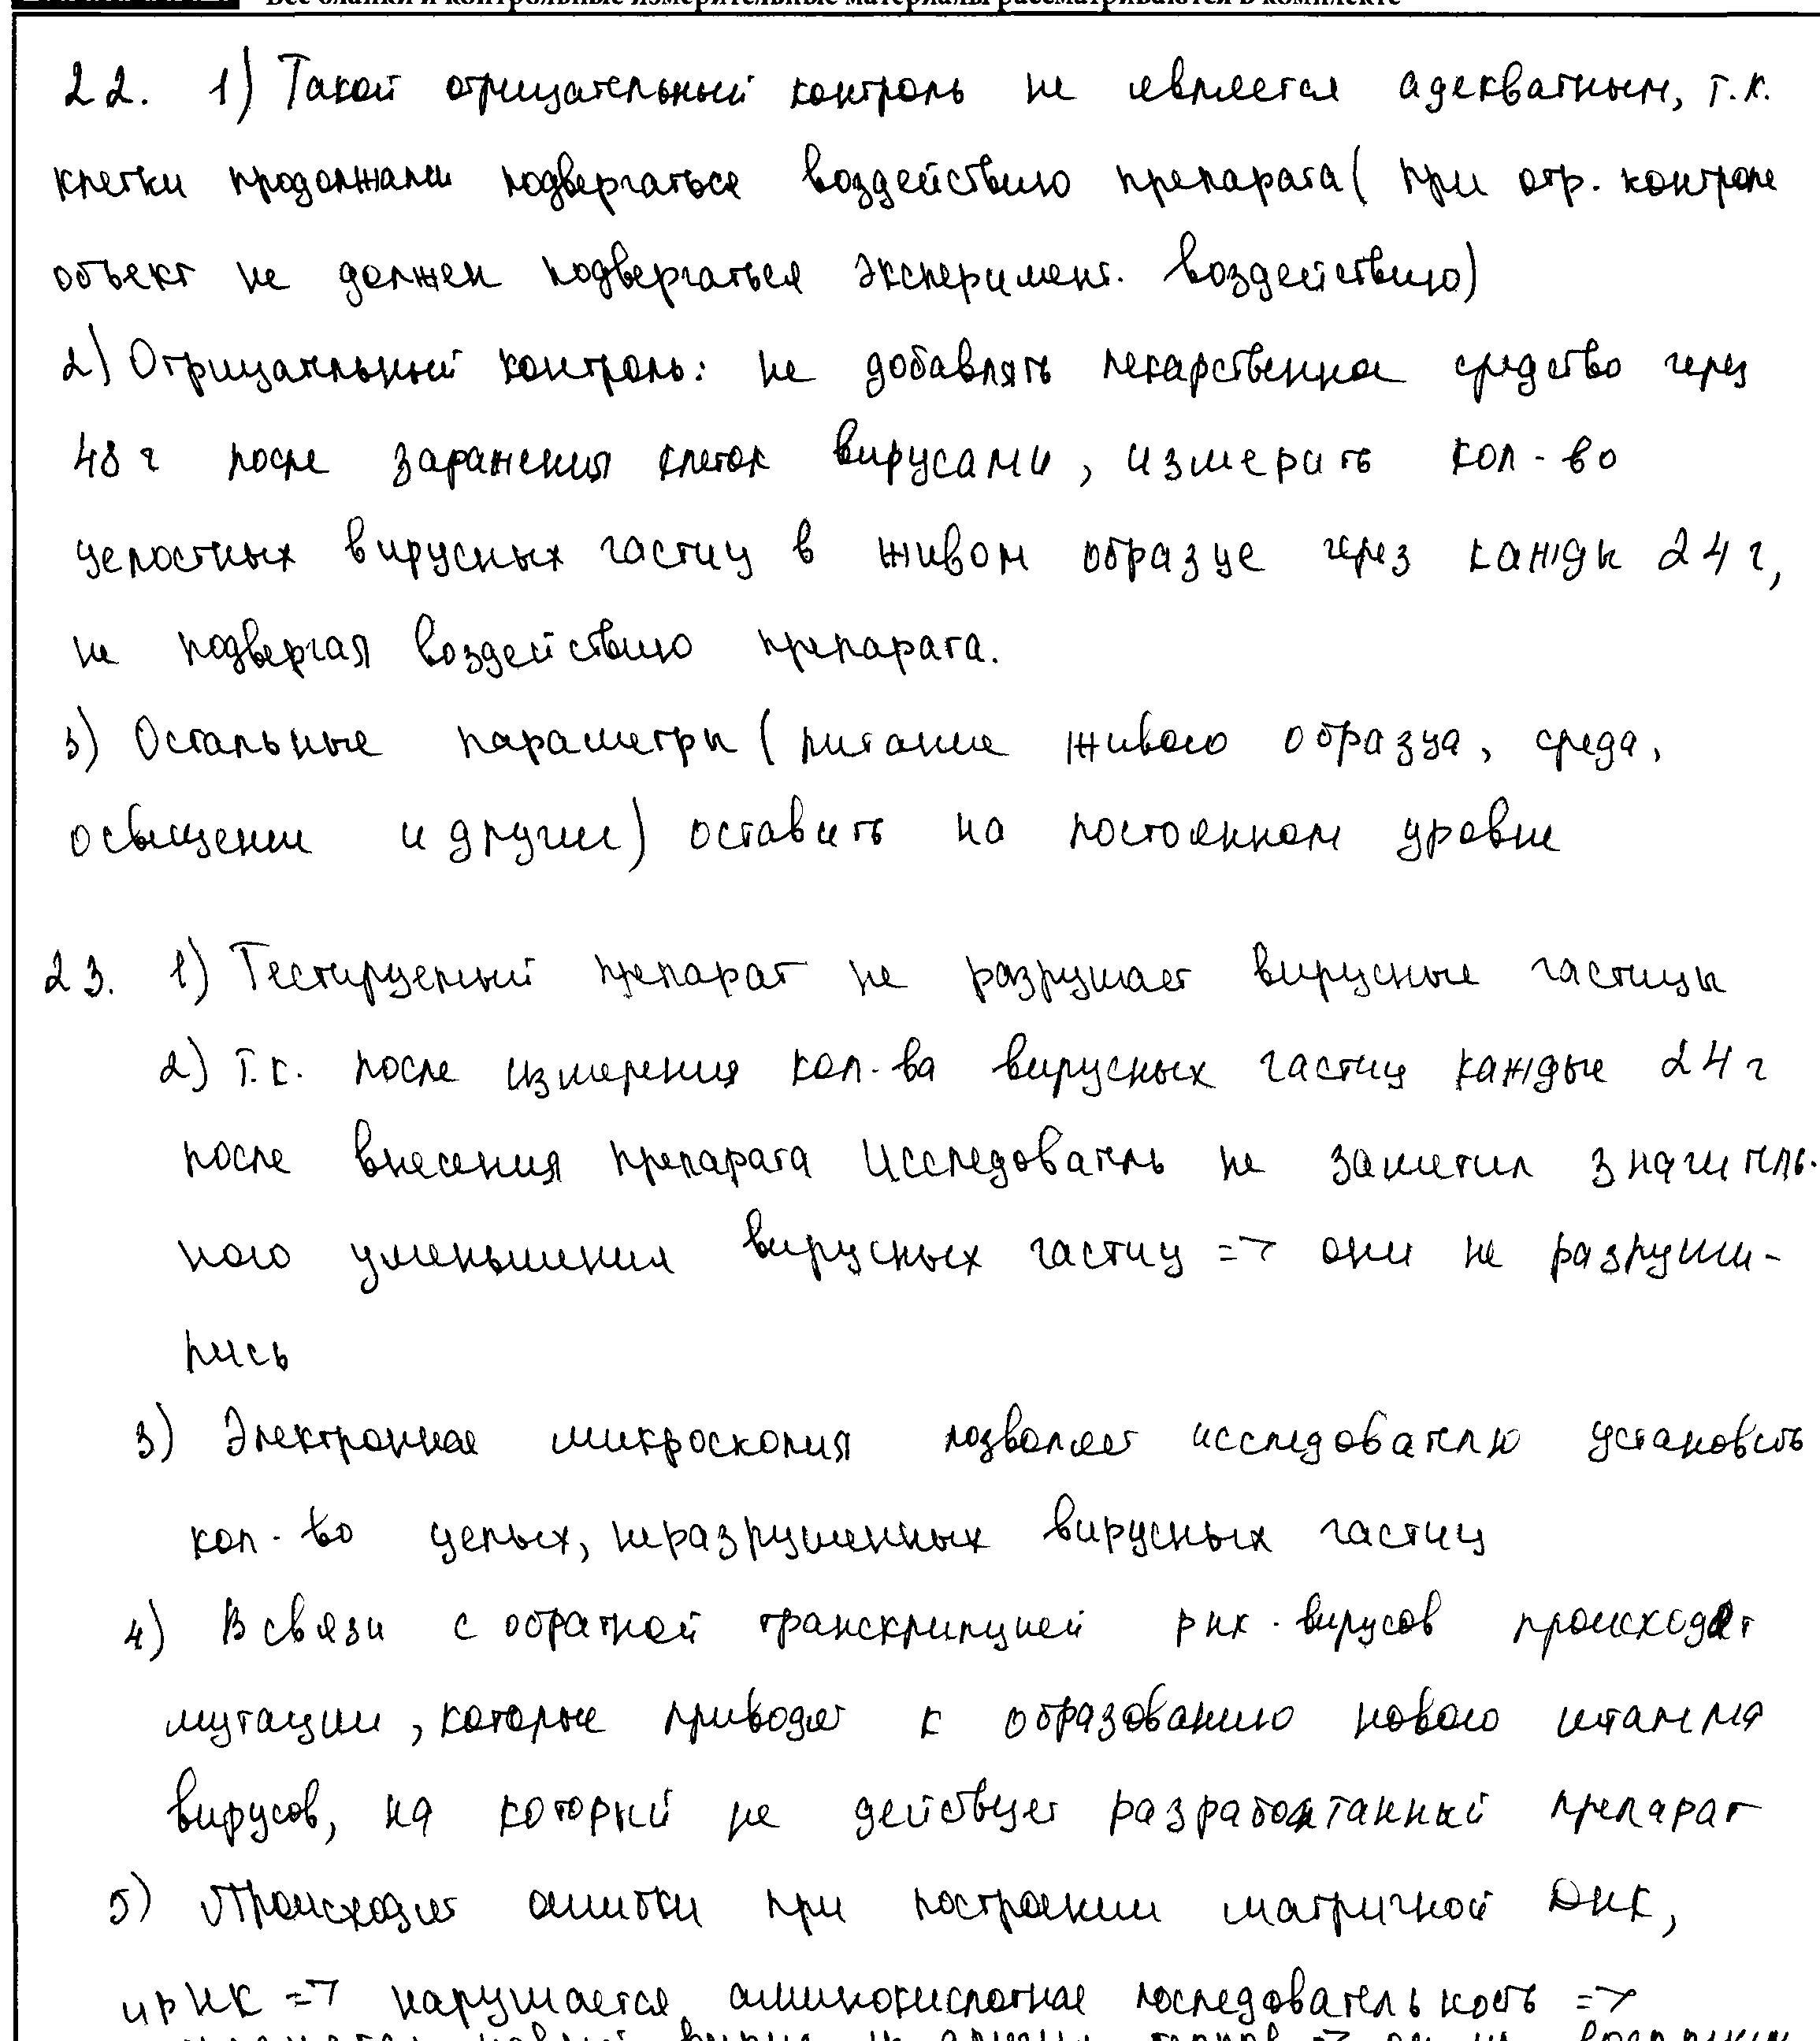 Все бланки и контрольные измерительные материалы рассматриваются в комплекте
22. 1) Такой отрицательный контроль не является адекватным, т.к.
клетки продолжали подвергаться воздействию препарата ( при отр. контроле
объект не должен подвергаться эксперимент. воздействию)
2) Отрицательный контроль: не добавлять лекарственное средство через
48 ч после заражения клеток вирусами, измерить кол-во
целостных вирусных частиц в живом образце через кажды 24 ч,
не подвергая воздействию препарата.
3) Остальные параметры ( питание живого образца, среда,
освещение и другие) оставить на постоянном уровне
23. 1) Тестируемый препарат не разрушает вирусные частицы
2) Т.к. после измерения кол-ва вирусных частиц каждые 24 ч
после внесения препарата исследователь не заметил значитель-
ного уменьшения вирусных частиц => они не разруши-
лись
3) Электронная микроскопия позволяет исследователю установить
кол-во целых, неразрушенных вирусных частиц
4) В связи с обратной транскрипцией рнк-вирусов происходят
мутации, которые приводят к образованию нового штамма
вирусов, на который не действует разработанный препарат
5) Происходят ошибки при построении матричной ДНК,
иРНК => нарушается аминокислотная последовательность =>